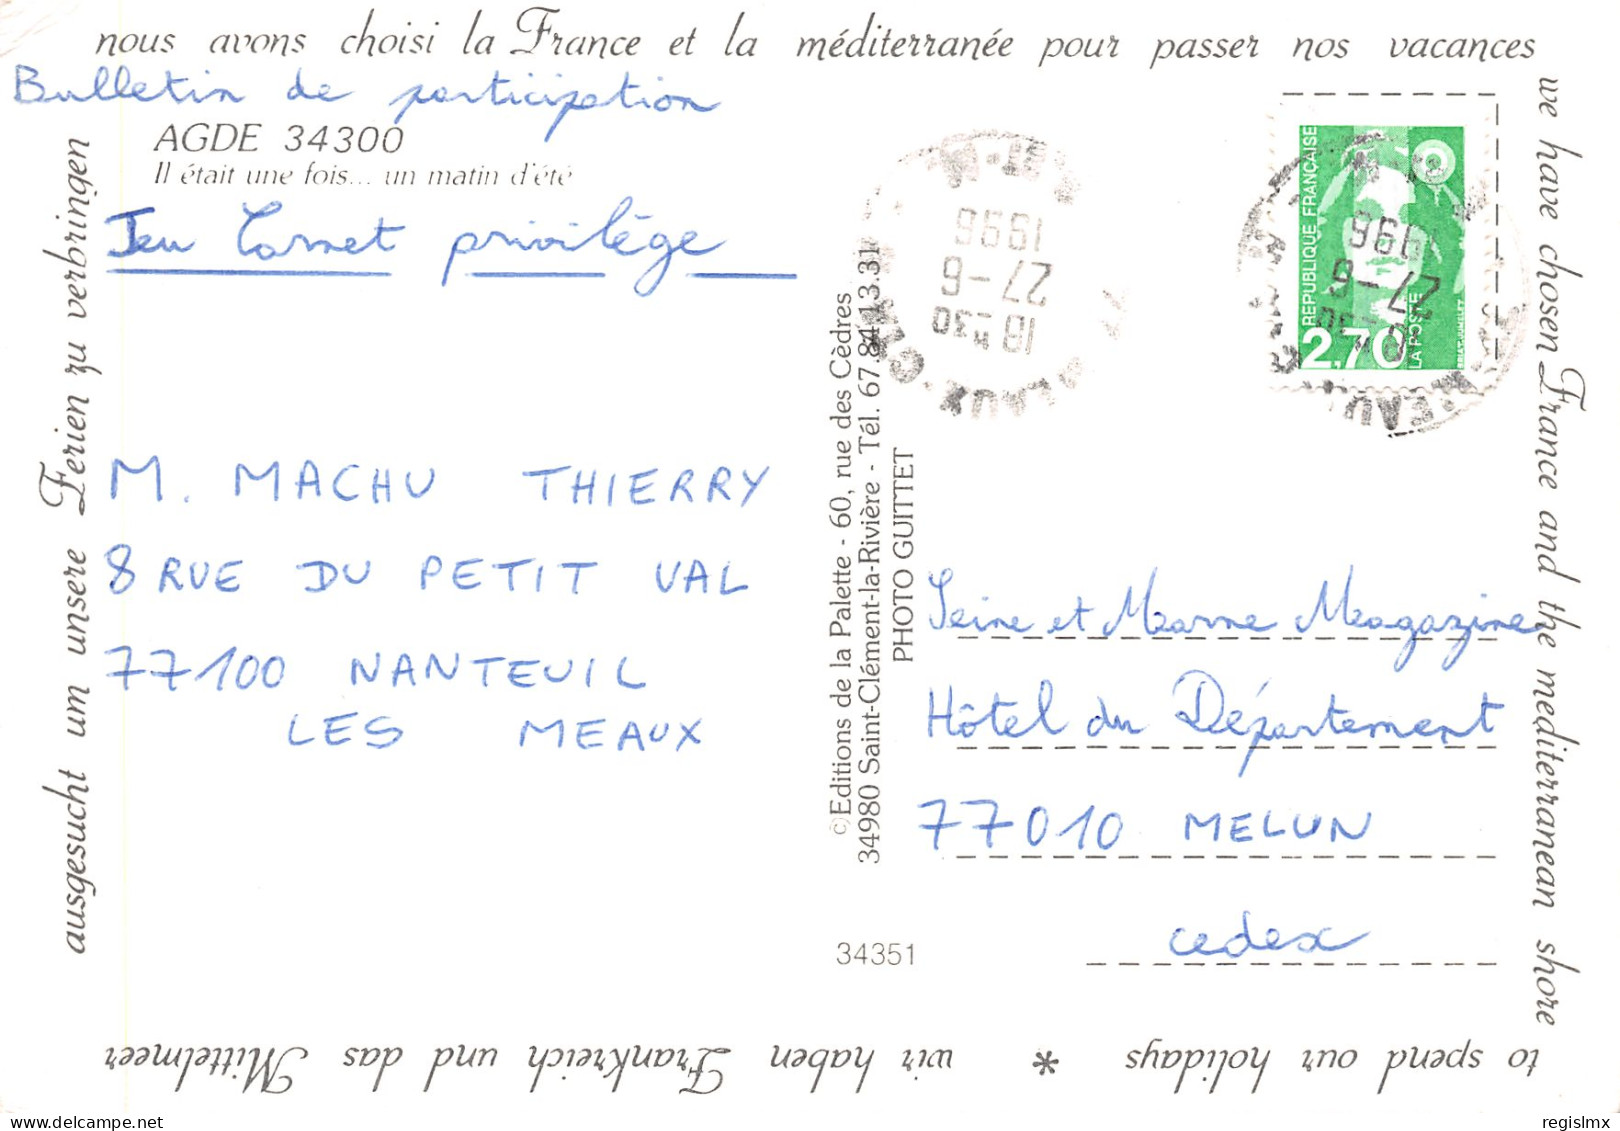 nous avons choisi la France et la méditerranée pour passer nos vacances
we have chosen France and the mediterranean shore
to spend our holidays * wir haben Frankreich und das Mittelmeer
ausgesucht um unsere Ferien zu verbringen
Bulletin de participation
AGDE 34300
Il était une fois... un matin d'été
Jeu Carnet privilège
M. MACHU THIERRY
8 RUE DU PETIT VAL
77100 NANTEUIL
LES MEAUX
©Editions de la Palette - 60, rue des Cèdres
34980 Saint-Clément-la-Rivière - Tél. 67.84.13.31
PHOTO GUITTET
34351
18 H 30
27-6
1996
REPUBLIQUE FRANÇAISE
2,70
LA POSTE
18 H 30
27-6
1996
Seine et Marne Magazine
Hôtel du Département
77010 MELUN
cedex
regislmx